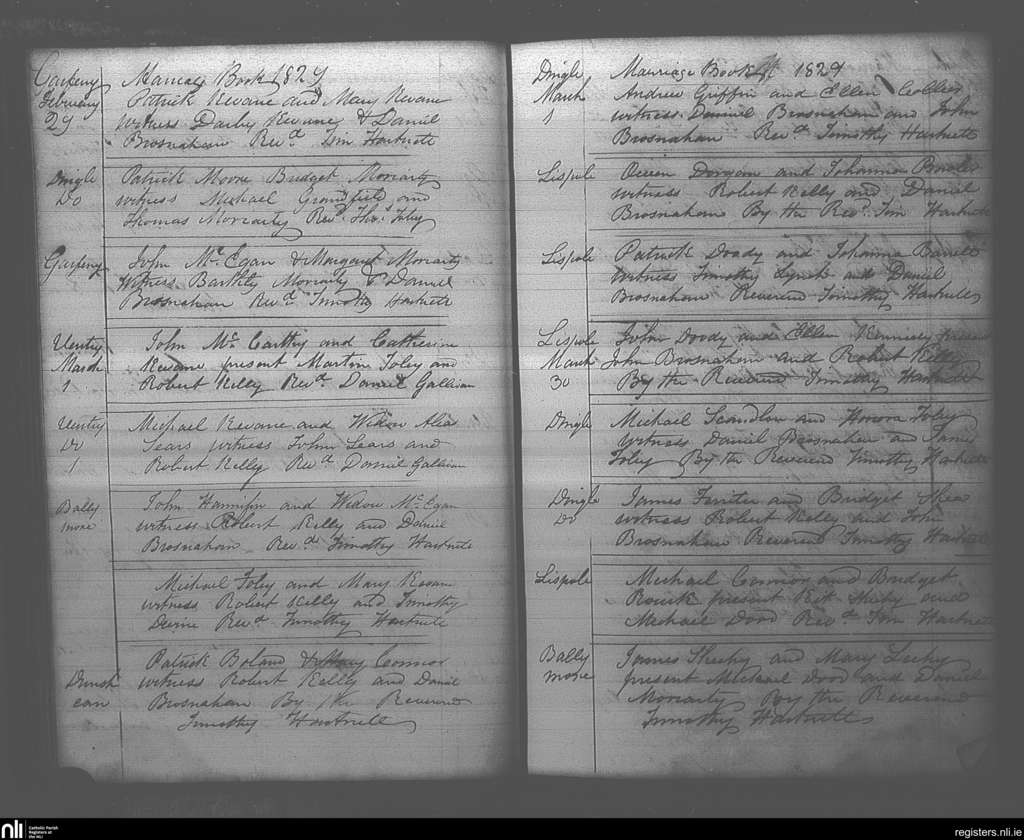 Garfeny Marriage Book 1829
February Patrick Kevane and Mary Kevane
29 witness Darby Kevane & Daniel
Brosnaham Revd. Tim Hartnete
Dingle Patrick Moore Bridget Moriarty
Do witness Michael Grandfield and
Thomas Moriarty Revd. Thos. Foley
Garfeny John Mc. Egan & Margaret Moriarty
Witness Barthly Moriarty & Daniel
Brosnaham Revd. Timothy Hartnete
Ventry John Mc. Carthy and Catherine
March Kevane present Martin Foley and
1 Robert Kelly Revd. Daniel Gallivan
Ventry Michael Kevane and Widow Alia
Do Sears witness John Sears and
1 Robert Kelly Revd. Daniel Gallivan
Bally John Hannifin and Widow Mc. Egan
more witness Robert Kelly and Daniel
Brosnaham Revd. Timothy Hartnete
Michael Foley and Mary Kevane
witness Robert Kelly and Timothy
Devine Revd. Timothy Hartnete
Patrick Boland & Mary Connor
Dunsh witness Robert Kelly and Daniel
ean Brosnahan By the Reverend
Timothy Hartnett
Dingle Marriage Book 1829
March Andrew Griffin and Ellen
1 witness Daniel Brosnahan and John
Brosnahan Revd. Timothy Hartnete
Lispole Owen Dorgan and Johanna
witness Robert Kelly and Daniel
Brosnahan By the Revd. Tim Hartnete
Lispole Patrick Doody and Johanna
witness Timothy Lynch and Daniel
Brosnaham Reverend Timothy Hartnete
Lispole John Doody and Ellen Kennedy present
March John Brosnaham and Robert Kelly
30 By the Reverend Timothy Hartnete
Dingle Michael Scandlon and Honora Foley
witness Daniel Brosnahen and James
Foley By the Reverend Timothy Hartnete
Dingle James Ferriter and Bridget Shea
Do witness Robert Kelly and John
Brosnahan Reverend Timothy Hartnete
Lispole Michael Connor and Bridget
Rourk present Kit Shihy and
Michael Dood Revd. Tim Hartnete
Bally James Sheehy and Mary
more present Michael Dood and Daniel
Moriarty By the Reverend
Timothy Hartnett
nli Catholic Parish
Registers at
the NLI
registers.nli.ie